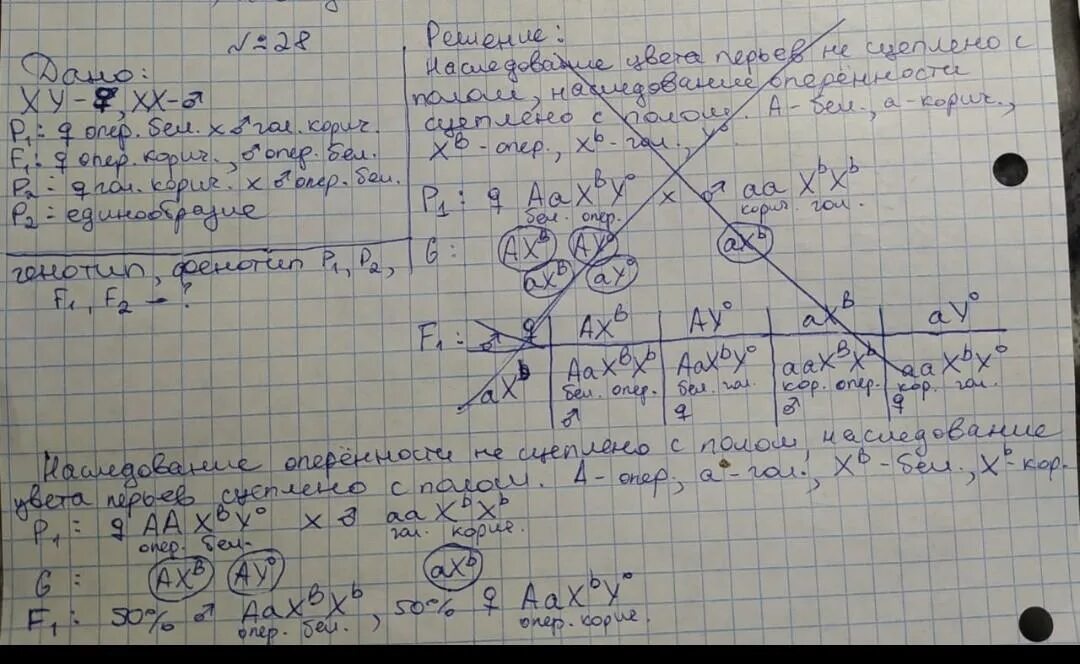 №28
Дано:
XY-♀, XX-♂
P₁: ♀ опер. бел. x ♂ гол. корич.
F₁: ♀ опер. корич., ♂ опер. бел.
P₂ = ♀ гол. корич. x ♂ опер. бел.
P₂ = единообразие
генотип, фенотип P₁, P₂,
F₁, F₂ - ?
Решение:
Наследование цвета перьев не сцеплено с
полом, наследование оперённости
сцеплено с полом. A-бел., a-корич.,
Xᴮ-опер., xᵇ-гол., Y⁰
P₁: ♀ AaXᴮY⁰ x ♂ aaXᵇXᵇ
бел. опер. корич. гол.
G: AXᴮ AY⁰ aXᵇ
aXᴮ aY⁰
F₁: ♂ ♀ AXᴮ AY⁰ aXᴮ aY⁰
aXᵇ AaXᴮXᵇ AaXᵇY⁰ aaXᴮXᵇ aaXᵇY⁰
бел. опер. бел. гол. кор. опер. кор. гол.
♂ ♀ ♂ ♀
Наследование оперённости не сцеплено с полом, наследование
цвета перьев сцеплено с полом. A-опер., a-гол., Xᴮ-бел., Xᵇ-кор.
P₁: ♀ AAXᴮY⁰ x ♂ aaXᵇXᵇ
опер. бел. гол. корие.
G: AXᴮ AY⁰ aXᵇ
F₁: 50% ♂ AaXᴮXᵇ, 50% ♀ AaXᵇY⁰
опер. бел. опер. корие.